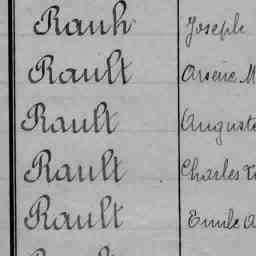 Rauh Joseph
Rault Arsène M
Rault Auguste
Rault Charles
Rault Emile A